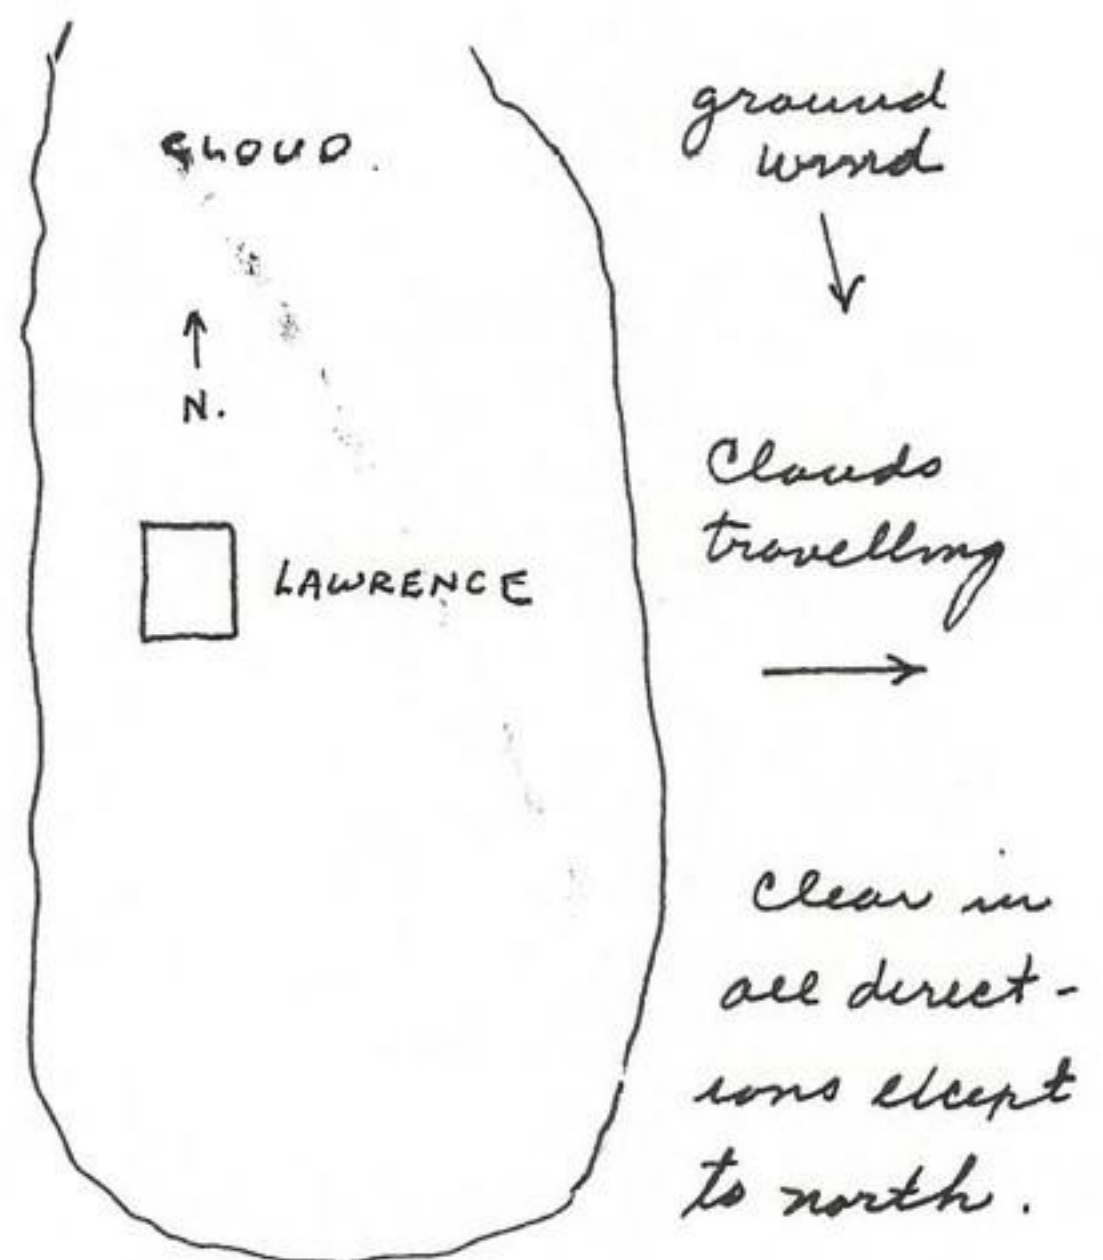 CLOUD.
N.
LAWRENCE
ground
wind
Clouds
travelling
Clear in
all direct-
ions except
to north.